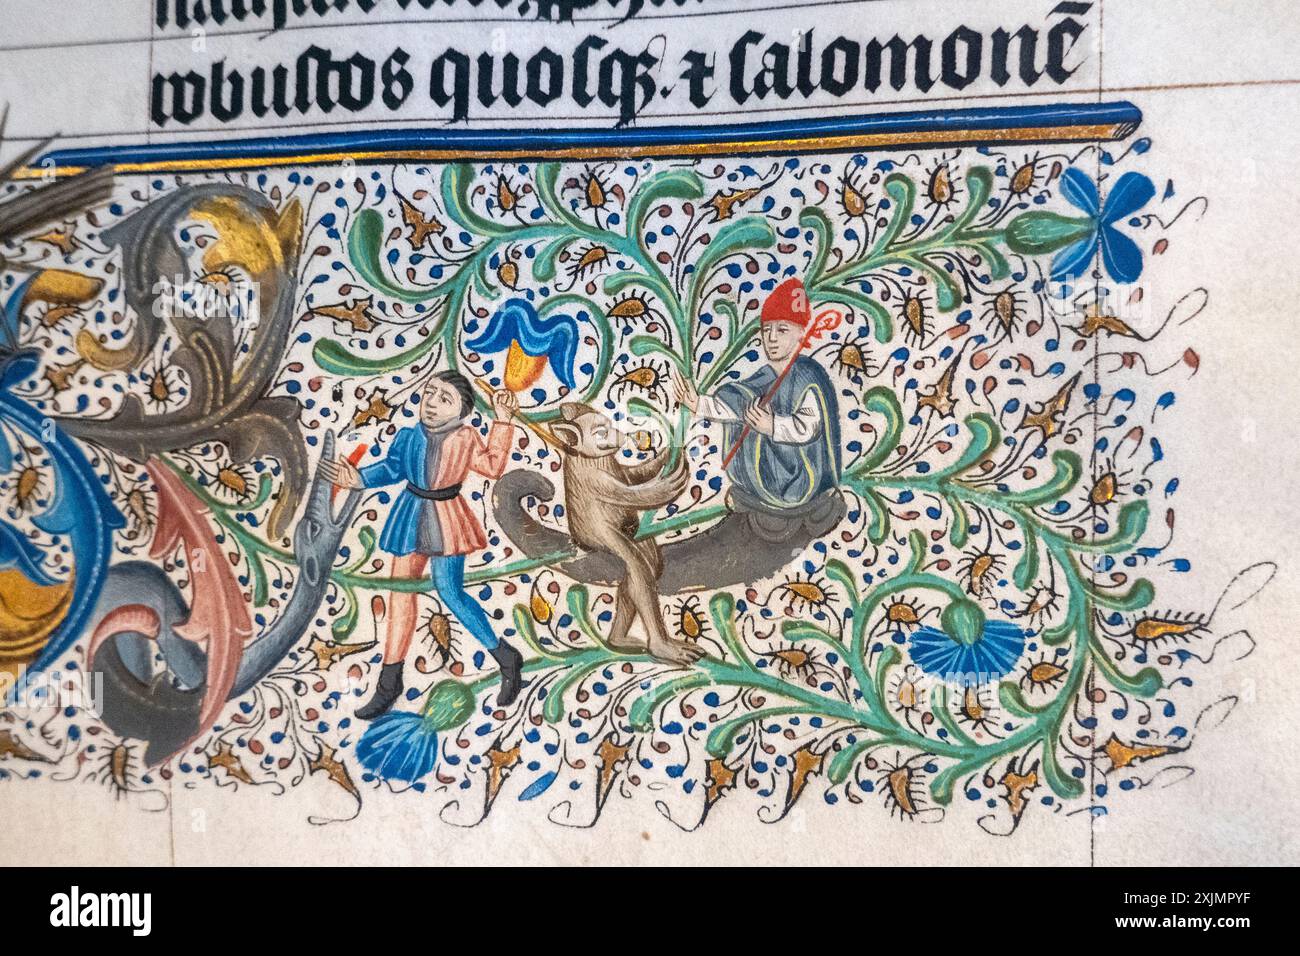 robustos quosq3. ⁊ salomonē
alamy
Image ID: 2XJMPYF
www.alamy.com